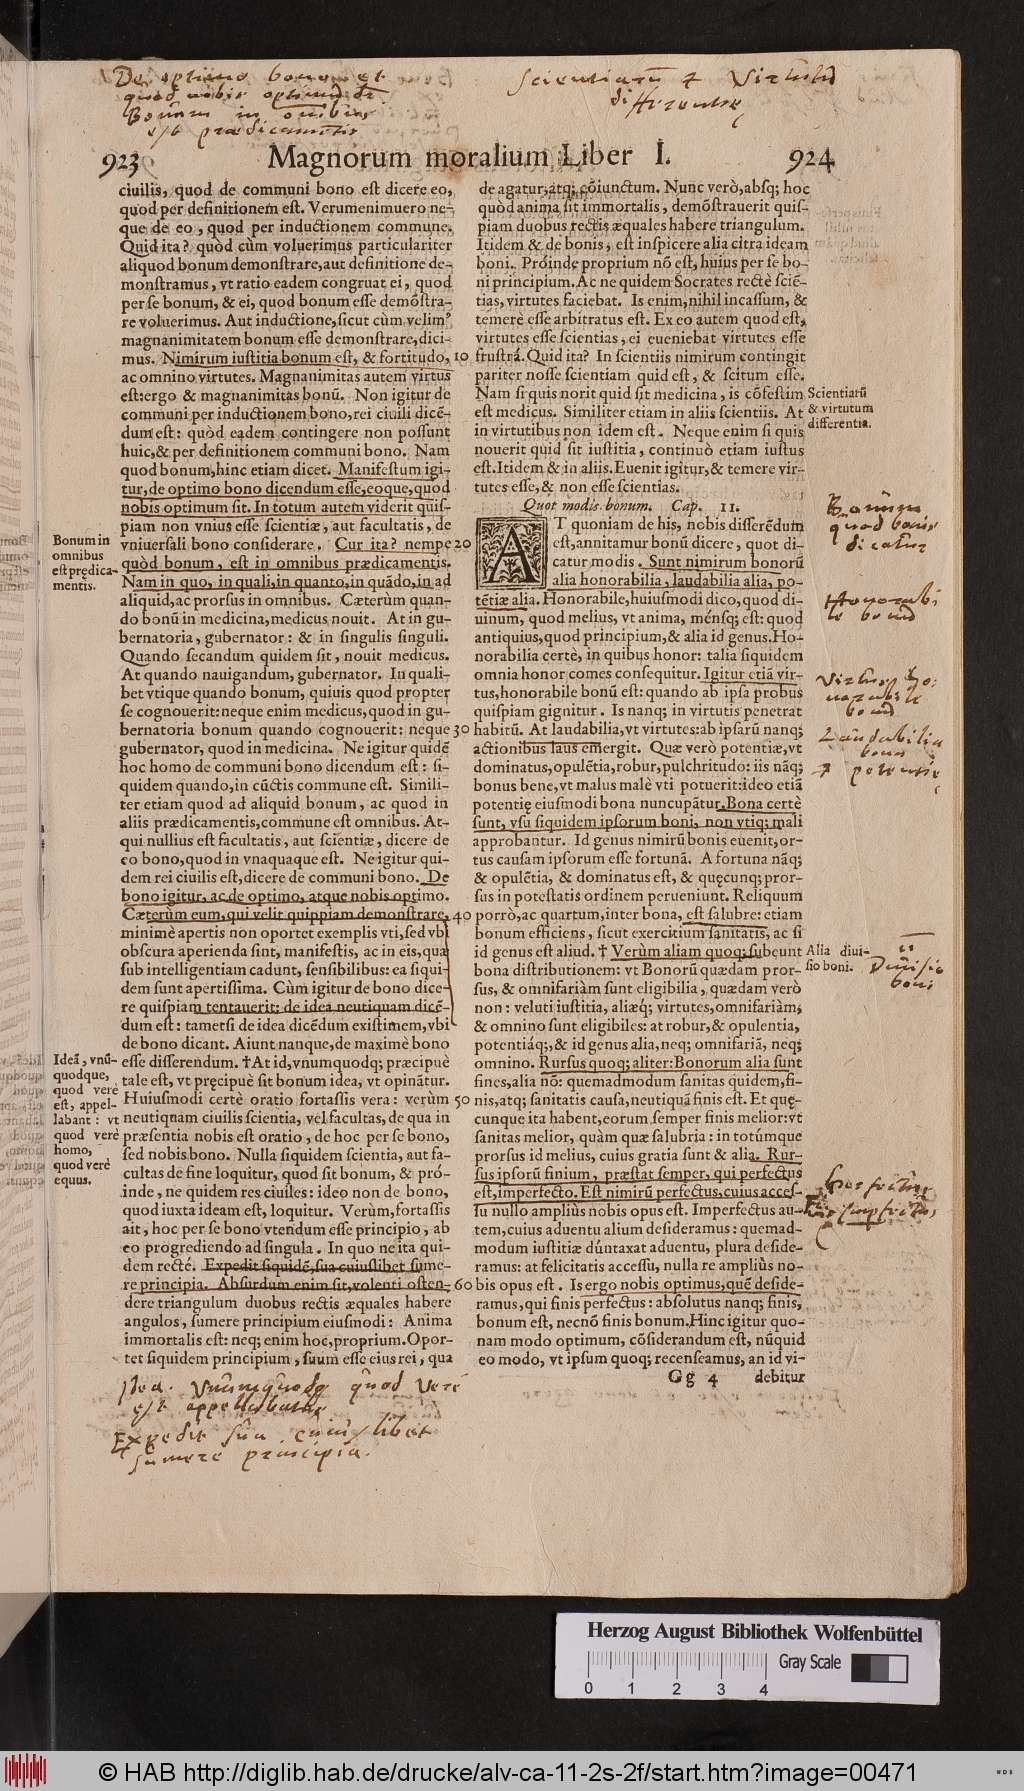 De optimo bono et
quod nobis optimum
Bonum in omnibus
est prædicamentis
Scientiarū & Virtutū
differentię
923
Magnorum moralium Liber I.
924
ciuilis, quod de communi bono est dicere eo,
quod per definitionem est. Verumenimuero ne-
que de eo, quod per inductionem commune.
Quid ita? quòd cùm voluerimus particulariter
aliquod bonum demonstrare, aut definitione de-
monstramus, vt ratio eadem congruat ei, quod
per se bonum, & ei, quod bonum esse demōstra-
re voluerimus. Aut inductione, sicut cùm velimꝰ
magnanimitatem bonum esse demonstrare, dici-
mus. Nimirum iustitia bonum est, & fortitudo, 10
ac omnino virtutes. Magnanimitas autem virtus
est: ergo & magnanimitas bonū. Non igitur de
communi per inductionem bono, rei ciuili dicē-
dum est: quòd eadem contingere non possunt
huic, & per definitionem communi bono. Nam
quod bonum, hinc etiam dicet. Manifestum igi-
tur, de optimo bono dicendum esse, eoque, quod
nobis optimum sit. In totum autem viderit quis-
piam non vnius esse scientiæ, aut facultatis, de
vniuersali bono considerare. Cur ita? nempe 20
quòd bonum, est in omnibus prædicamentis.
Nam in quo, in quali, in quanto, in quādo, in ad
aliquid, ac prorsus in omnibus. Cæterùm quan-
do bonū in medicina, medicus nouit. At in gu-
bernatoria, gubernator: & in singulis singuli.
Quando secandum quidem sit, nouit medicus.
At quando nauigandum, gubernator. In quali-
bet vtique quando bonum, quiuis quod propter
se cognouerit: neque enim medicus, quod in gu-
bernatoria bonum quando cognouerit: neque 30
gubernator, quod in medicina. Ne igitur quidē
hoc homo de communi bono dicendum est: si-
quidem quando, in cūctis commune est. Simili-
ter etiam quod ad aliquid bonum, ac quod in
aliis prædicamentis, commune est omnibus. At-
qui nullius est facultatis, aut scientiæ, dicere de
eo bono, quod in vnaquaque est. Ne igitur qui-
dem rei ciuilis est, dicere de communi bono. De
bono igitur, ac de optimo, atque nobis optimo.
Cæterùm eum, qui velit quippiam demonstrare, 40
minimè apertis non oportet exemplis vti, sed vbi
obscura aperienda sint, manifestis, ac in eis, quæ
sub intelligentiam cadunt, sensibilibus: ea siqui-
dem sunt apertissima. Cùm igitur de bono dice-
re quispiam tentauerit: de idea neutiquam dicē-
dum est: tametsi de idea dicēdum existimem, vbi
de bono dicant. Aiunt nanque, de maximè bono
esse disserendum. †At id, vnumquodq; præcipuè
tale est, vt pręcipuè sit bonum idea, vt opinātur.
Huiusmodi certè oratio fortassis vera: verùm 50
neutiquam ciuilis scientia, vel facultas, de qua in
præsentia nobis est oratio, de hoc per se bono,
sed nobis bono. Nulla siquidem scientia, aut fa-
cultas de fine loquitur, quòd sit bonum, & pró-
inde, ne quidem res ciuiles: ideo non de bono,
quod iuxta ideam est, loquitur. Verùm, fortassis
ait, hoc per se bono vtendum esse principio, ab
eo progrediendo ad singula. In quo ne ita qui-
dem rectè. Expedit siquidē, sua cuiuslibet sume-
re principia. Absurdum enim sit, volenti osten- 60
dere triangulum duobus rectis æquales habere
angulos, sumere principium eiusmodi: Anima
immortalis est: neq; enim hoc, proprium. Opor-
tet siquidem principium, suum esse eius rei, qua
Bonum in
omnibus
est prędica-
mentis.
Ideā, vnū-
quodque,
quod verè
est, appel-
labant: vt
quod verè
homo,
quod verè
equus.
de agatur, atq; cōiunctum. Nunc verò, absq; hoc
quòd anima sit immortalis, demōstrauerit quis-
piam duobus rectis æquales habere triangulum.
Itidem & de bonis, est inspicere alia citra ideam
boni. Próinde proprium nō est, huius per se bo-
ni principium. Ac ne quidem Socrates rectè sciē-
tias, virtutes faciebat. Is enim, nihil incassum, &
temerè esse arbitratus est. Ex eo autem quod est,
virtutes esse scientias, ei eueniebat virtutes esse
frustrà. Quid ita? In scientiis nimirum contingit
pariter nosse scientiam quid est, & scitum esse.
Nam si quis norit quid sit medicina, is cōfestim
est medicus. Similiter etiam in aliis scientiis. At
in virtutibus non idem est. Neque enim si quis
nouerit quid sit iustitia, continuò etiam iustus
est. Itidem & in aliis. Euenit igitur, & temere vir-
tutes esse, & non esse scientias.
Quot modis bonum. Cap. II.
AT quoniam de his, nobis disserēdum
est, annitamur bonū dicere, quot di-
catur modis. Sunt nimirum bonorū
alia honorabilia, laudabilia alia, po-
tētiæ alia. Honorabile, huiusmodi dico, quod di-
uinum, quod melius, vt anima, ménsq; est: quod
antiquius, quod principium, & alia id genus. Ho-
norabilia certè, in quibus honor: talia siquidem
omnia honor comes consequitur. Igitur etiā vir-
tus, honorabile bonū est: quando ab ipsa probus
quispiam gignitur. Is nanq; in virtutis penetrat
habitū. At laudabilia, vt virtutes: ab ipsarū nanq;
actionibus laus emergit. Quæ verò potentiæ, vt
dominatus, opulētia, robur, pulchritudo: iis nāq;
bonus bene, vt malus malè vti potuerit: ideo etiā
potentię eiusmodi bona nuncupātur. Bona certè
sunt, vsu siquidem ipsorum boni, non vtiq; mali
approbantur. Id genus nimirū bonis euenit, or-
tus causam ipsorum esse fortunā. A fortuna nāq;
& opulētia, & dominatus est, & quęcunq; pror-
sus in potestatis ordinem perueniunt. Reliquum
porrò, ac quartum, inter bona, est salubre: etiam
bonum efficiens, sicut exercitium sanitatis, ac si
id genus est aliud. † Verùm aliam quoq; subeunt
bona distributionem: vt Bonorū quædam pror-
sus, & omnifariàm sunt eligibilia, quædam verò
non: veluti iustitia, aliæq; virtutes, omnifariàm,
& omnino sunt eligibiles: at robur, & opulentia,
potentiáq;, & id genus alia, neq; omnifariā, neq;
omnino. Rursus quoq; aliter: Bonorum alia sunt
fines, alia nō: quemadmodum sanitas quidem, fi-
nis, atq; sanitatis causa, neutiquā finis est. Et quę-
cunque ita habent, eorum semper finis melior: vt
sanitas melior, quàm quæ salubria: in totúmque
prorsus id melius, cuius gratia sunt & alia. Rur-
sus ipsorū finium, præstat semper, qui perfectus
est, imperfecto. Est nimirū perfectus, cuius acces-
su nullo ampliùs nobis opus est. Imperfectus au-
tem, cuius aduentu alium desideramus: quemad-
modum iustitiæ dúntaxat aduentu, plura deside-
ramus: at felicitatis accessu, nulla re ampliùs no-
bis opus est. Is ergo nobis optimus, quē deside-
ramus, qui finis perfectus: absolutus nanq; finis,
bonum est, necnō finis bonum. Hinc igitur quo-
nam modo optimum, cōsiderandum est, nūquid
eo modo, vt ipsum quoq; recenseamus, an id vi-
Gg 4 debitur
Scientiarū
& virtutum
differentia.
Bonum
quod bonis
dicatur
Honorabi
le bonū
Virtus ho:
norabile
bonū
Laudabilia
bona
& potentię
Alia diui-
sio boni.
II
Diuisio
boni
Idea. Vnumquodq quod Verè
est appellabatur
Expedit sua cuiuslibet
sumere principia.
Herzog August Bibliothek Wolfenbüttel
Gray Scale
0 1 2 3 4
© HAB http://diglib.hab.de/drucke/alv-ca-11-2s-2f/start.htm?image=00471